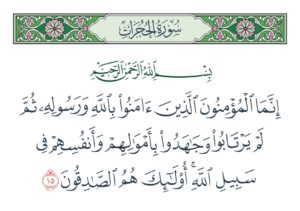 سُورَةُ الحُجُرَاتِ
بِسْمِ اللَّهِ الرَّحْمَٰنِ الرَّحِيمِ
إِنَّمَا الْمُؤْمِنُونَ الَّذِينَ ءَامَنُوا بِاللَّهِ وَرَسُولِهِ ثُمَّ
لَمْ يَرْتَابُوا وَجَٰهَدُوا بِأَمْوَٰلِهِمْ وَأَنفُسِهِمْ فِى
سَبِيلِ اللَّهِ ۚ أُو۟لَٰٓئِكَ هُمُ الصَّٰدِقُونَ ١٥